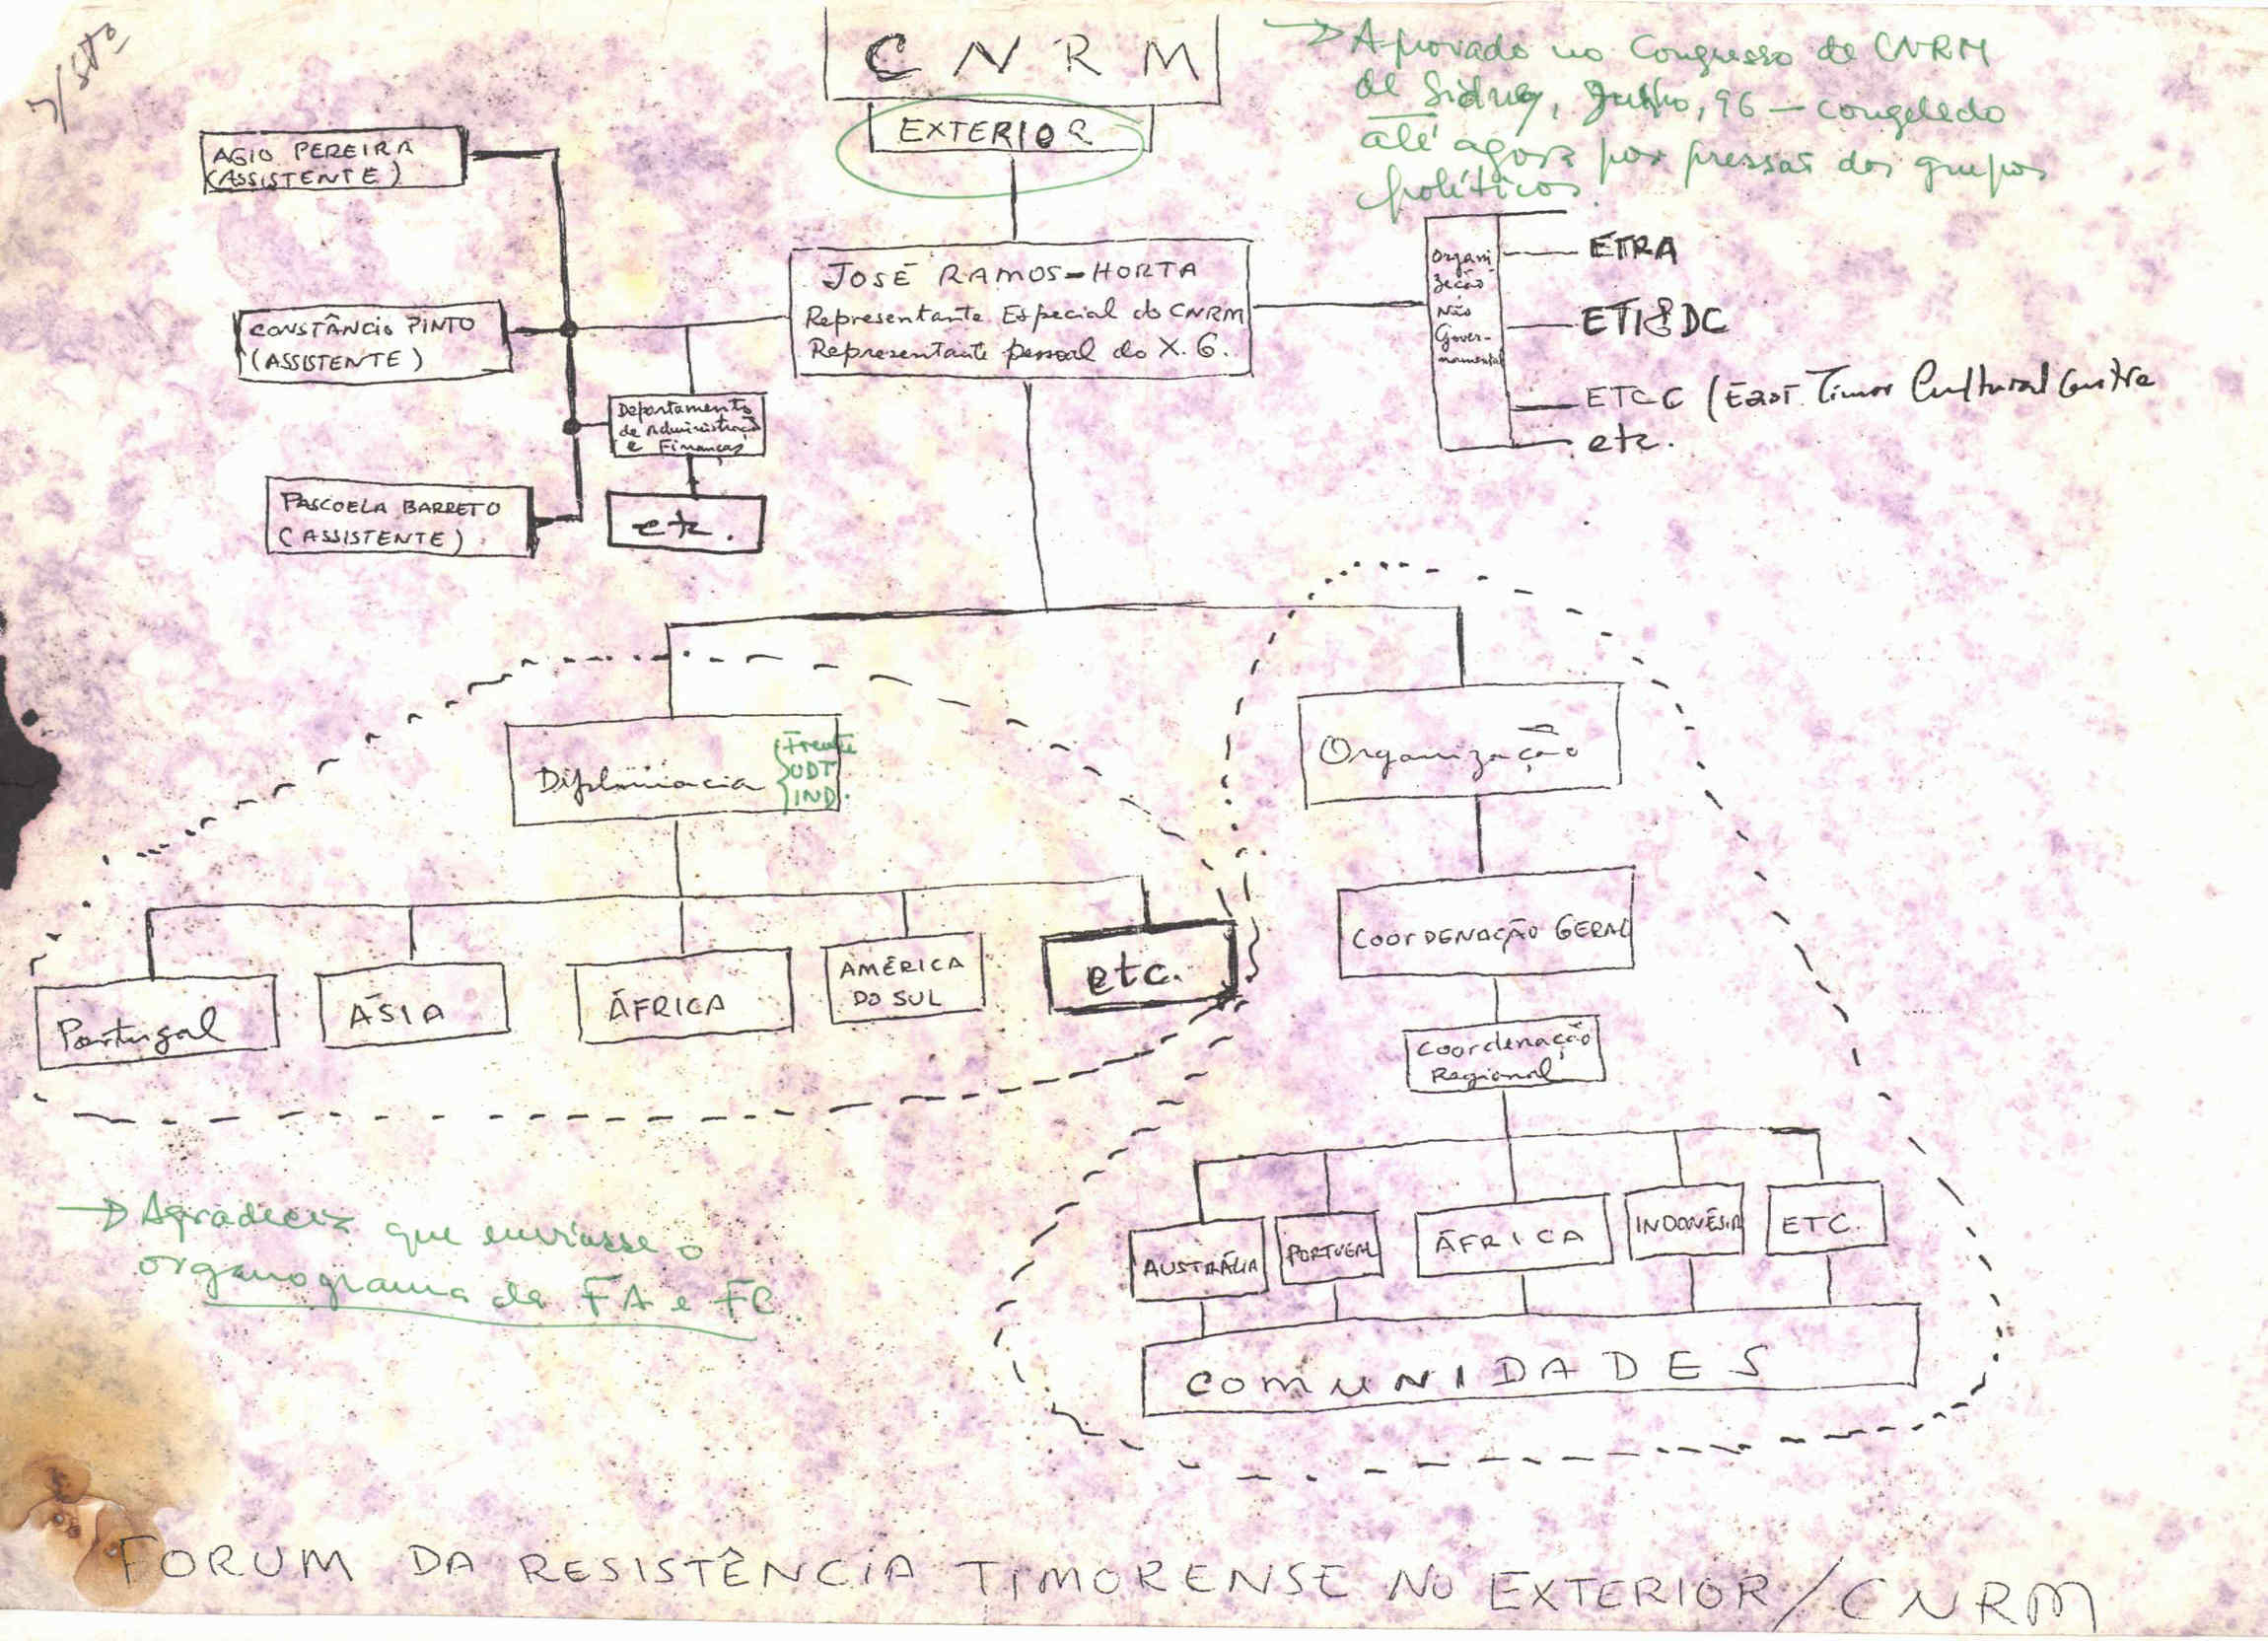 CNRM
EXTERIOR
→ Aprovado no Congresso de CNRM
de Sidney, Julho, 96 — congelado
até agora por pressão dos grupos
políticos.
AGIO PEREIRA
(ASSISTENTE)
CONSTÂNCIO PINTO
(ASSISTENTE)
PASCOELA BARRETO
(ASSISTENTE)
Departamento
de Administração
e Finanças
etc.
JOSÉ RAMOS-HORTA
Representante Especial do CNRM
Representante pessoal do X.G.
Organi-
zação
Não
Gover-
namental
ETRA
ETISDC
ETCC (East Timor Cultural Centre
etc.
Diplomacia
Frente
UDT
IND.
Portugal
ÁSIA
ÁFRICA
AMÉRICA
DO SUL
etc.
Organização
COORDENAÇÃO GERAL
Coordenação
Regional
AUSTRÁLIA
PORTUGAL
ÁFRICA
INDONÉSIA
ETC.
COMUNIDADES
→ Agradecia que enviasse o
organograma da FA e FC
FORUM DA RESISTÊNCIA TIMORENSE NO EXTERIOR/CNRM